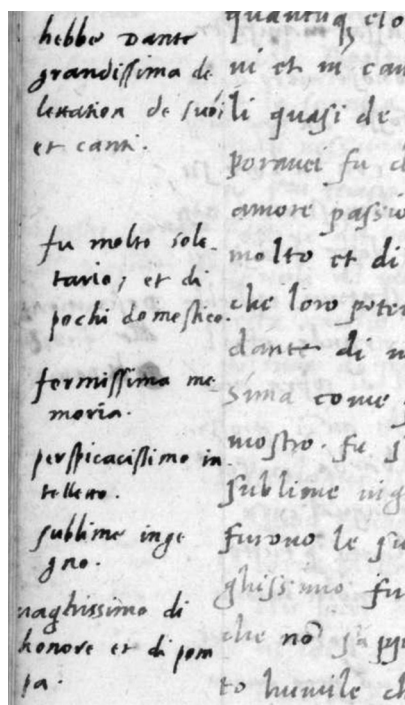 hebbe Dante
grandissima de
lettation de suoi
et canti.
fu molto soli
tario, et di
pochi domestico.
fermissima me
moria.
perspicacissimo in
telletto.
sublime inge
gno.
vaghissimo di
honore et di pom
pa.
quantuq
ni et in can
li quasi de
fu
amore passio
molto et di
che loro poter
dante di
sima come
mostro. fu s
sublime
furono le su
ghissimo fu
che no
to humile ch